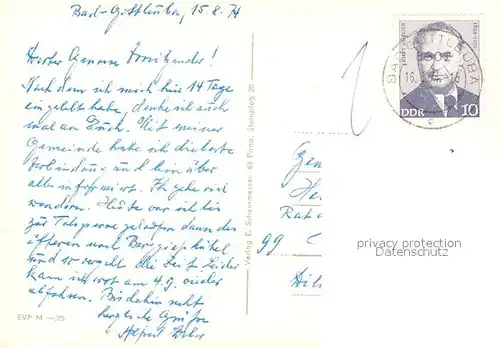 Bad-Gottleuba, 15.8.74
Werter Genosse Vorsitzender!
Nach dem ich mich hier 14 Tage
eingelebt habe, denke ich auch
mal an Euch. Mit meiner
Gemeinde habe ich die beste
Verbindung und bin über
alles informiert. Ich gehe viel
wandern. Heute war ich bis
zur Talsperre gelaufen dann des
öfteren nach Berggießhübel
und so vergeht die Zeit. Leider
kann ich erst am 4.9. wieder
abfahren. Bis dahin recht
herzliche Grüße
Alfred
EVP M —,25
Verlag E. Schoenmesser, 83 Pirna, Steinplatz 20
BAD GOTTLEUBA
16
DDR 10
Gen
He
Rat d
99
privacy protection